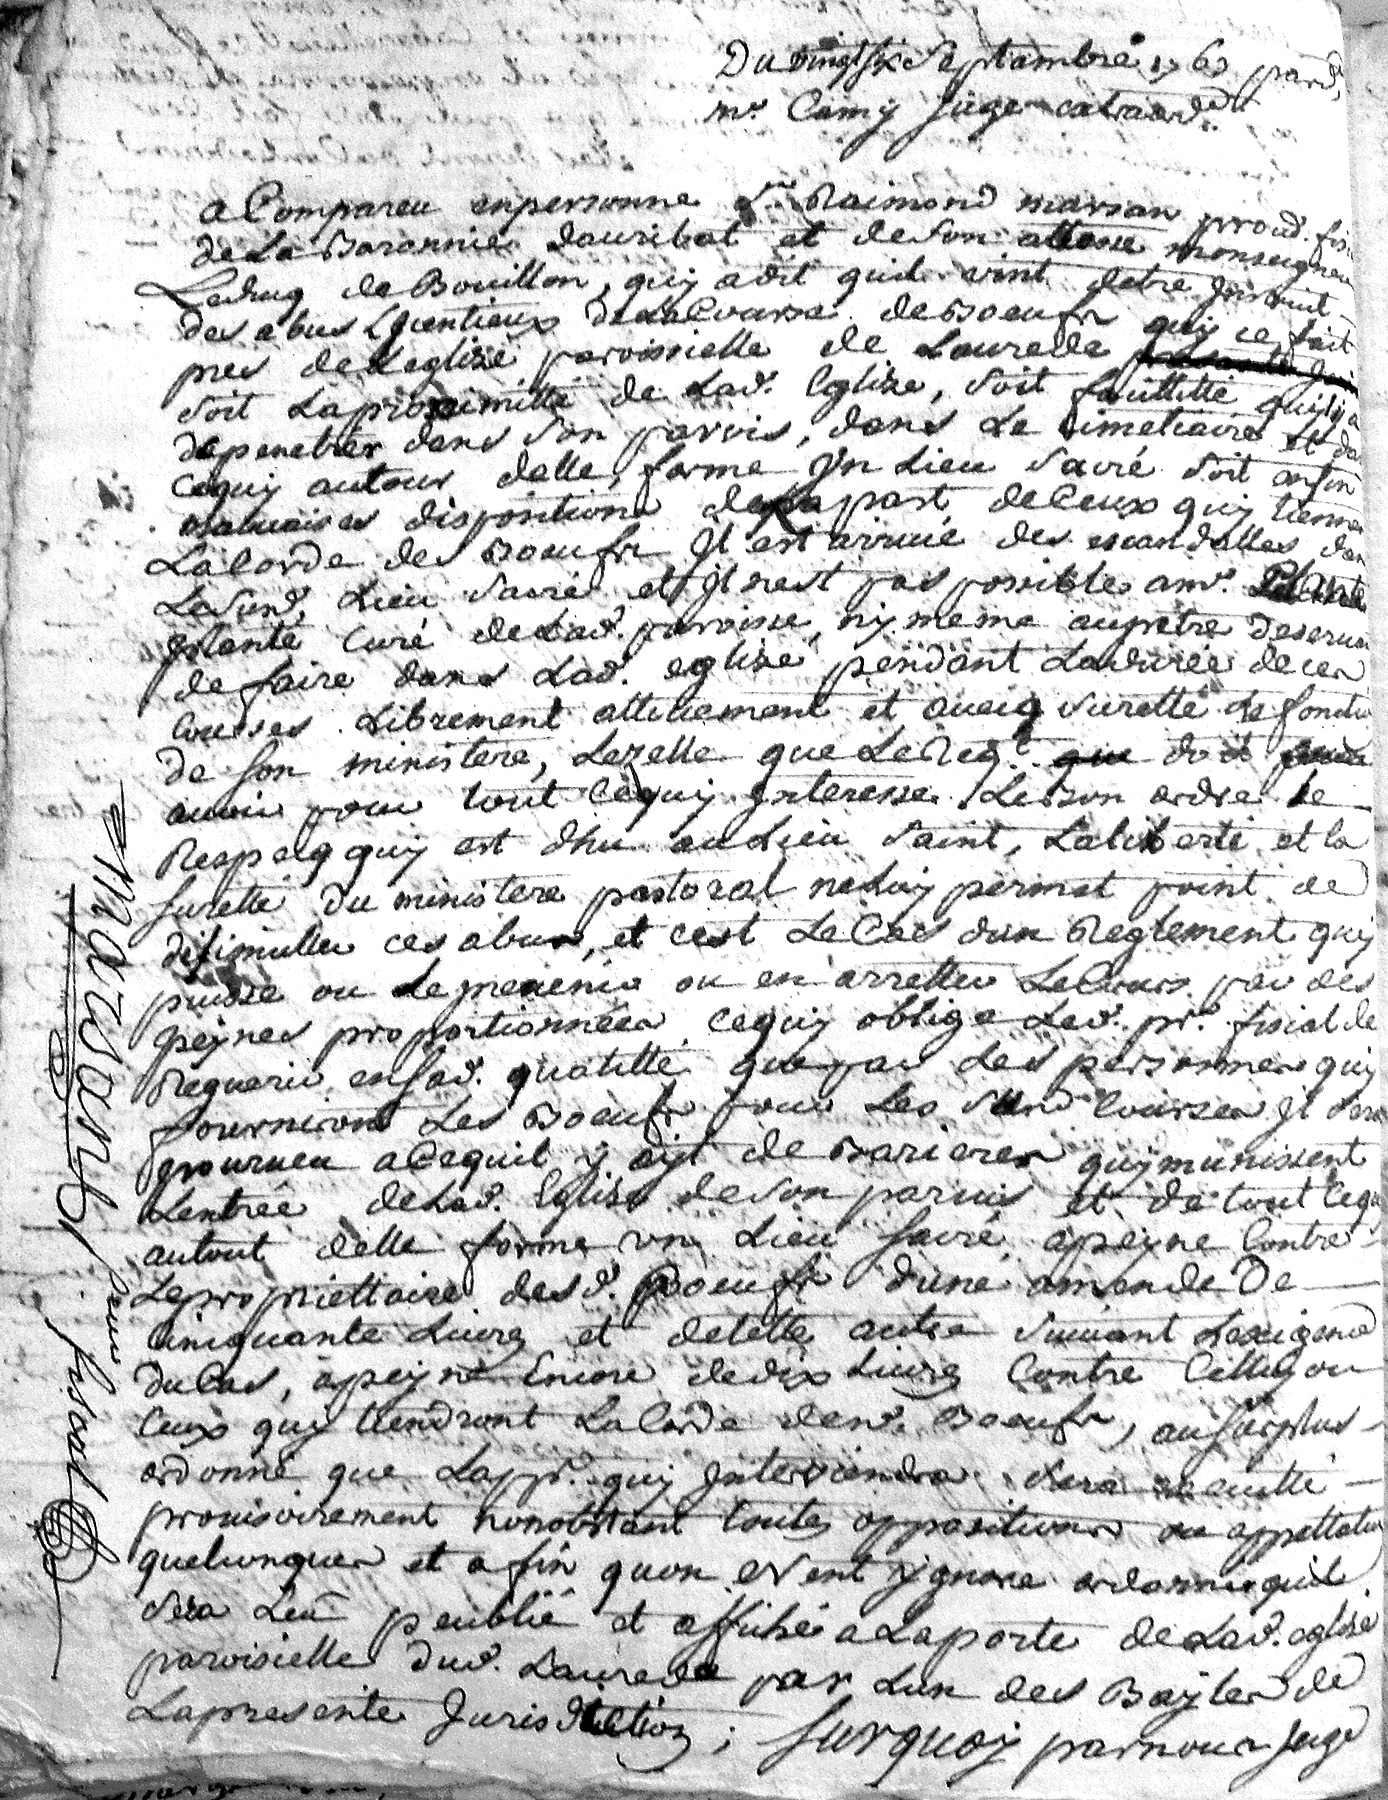 Du vingt six Septambre 176 pard,
mr. Camy Juge
a Compareu enpersonne Sr. Raimond marsan procr. fis
de La Baronnie dauribat et deson altesse monseigneu
Leduq de Bouillon, quy a dit quil vint detre Jnstruit
des abus de La Course de Boeufs quy ce fait
pres de Leglize paroissielle de Laurede
soit Laproximitté de Lad. Eglize, soit fasillitté quily a
depenetrer dans son parvis, dans Le simetiaire et da
cequy autour delle forme Un Lieu Sacré soit enfin
mauvaises dispositions dela part deCeux quy tienne
LaCorde des Boeufs Jl est arrivé des escandalles dan
Lesusd. Lieu Sacré et Jl nest pas possible a mr.
curé de Lad. paroisse, ny meme aupretre deserva
de faire dans Lad. eglize pendant Ladurée de ces
Courses Librement attivement et aveiq suretté Le fonctio
de son ministere, Lezelle que Le Req.t doit
avoir pour tout Cequy Jnteresse Lebon ordre le
Respeiq quy est dhu au Lieu Saint, Laliberté et la
suretté du ministere pastoral ne Luy permet point de
disimuller ces abus, et cest LeCas dun Reglement quy
puisse ou Le prevenir ou en arretter LeCours par des
peynes proportionnées cequy oblige Led. pr. fiscal de
Requerir enSad. qualitté que par Les personnes quy
fourniront Les Boeufs pour Les Sud. Courses Jl sera
pourveu aCequil y ayt de Barieres quymunissent
Lentrée de Lad. Eglize deson parvis et de tout Cequy
autout delle forme un Lieu Sacré, apeyne Contre
Lepropriettaire desd. Boeufs dune amende De
Cinquante Livres et detelle autre Suivant Lexigence
du Cas, apeyne Encore dedix Livres Contre Celluy ou
Ceux quy tiendront LaCorde desd. Boeufs, au surplus
ordonné que Lapp.t quy Jnterviendra sera executté
provisoirement nonobstant toutes oppositions ou appellation
quelconques et afin quon Nent ygnore ordonne quil
sera Leu peublié et affiché a Laporte de Lad. eglize
paroisielle dud. Laurede par Lun des Bayles de
Lapresente Jurisdiction ; surquoy par nous Juge
marsans pour fiscal